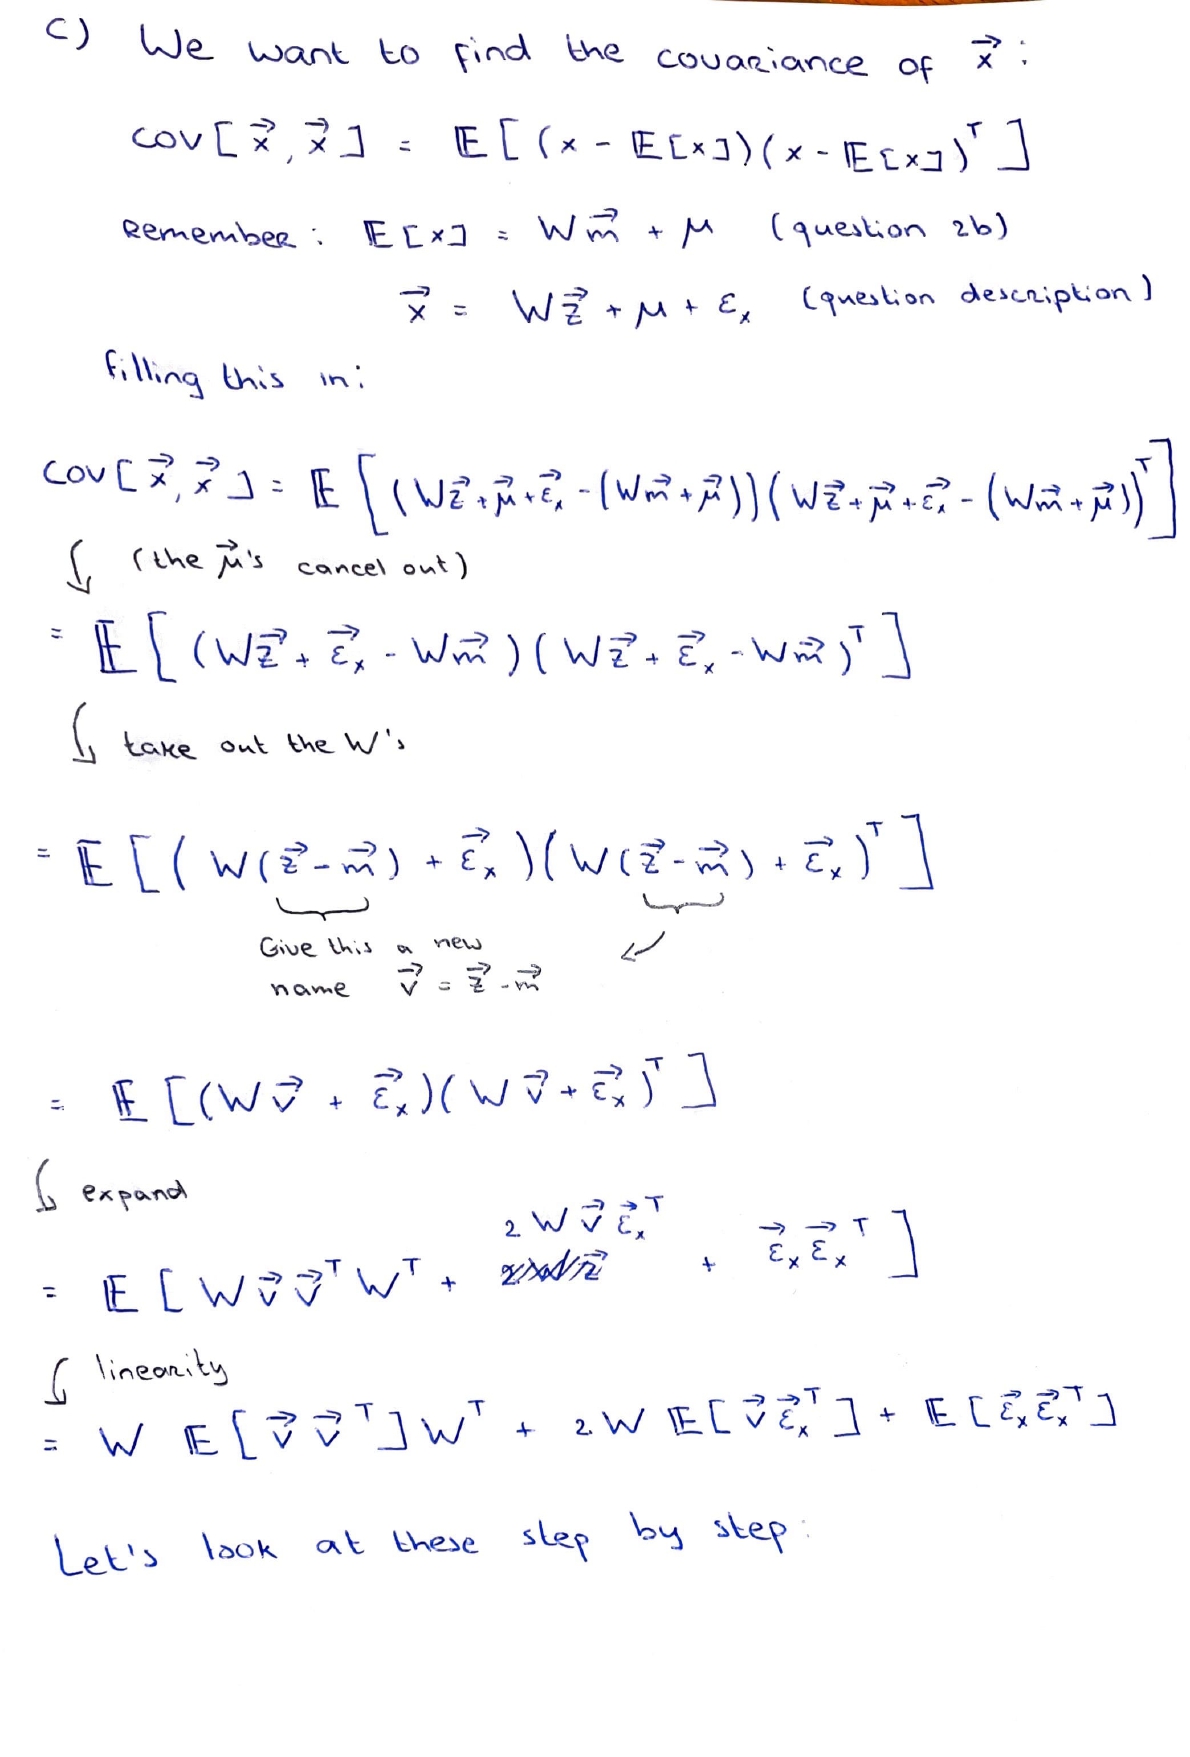 c) We want to find the covariance of x⃗ :
cov[x⃗, x⃗] = 𝔼[(x - 𝔼[x])(x - 𝔼[x])ᵀ]
Remember : 𝔼[x] = Wm⃗ + μ (question 2b)
x⃗ = Wz⃗ + μ + εₓ (question description)
filling this in:
cov[x⃗, x⃗] = 𝔼[(Wz⃗ + μ⃗ + ε⃗ₓ - (Wm⃗ + μ⃗))(Wz⃗ + μ⃗ + ε⃗ₓ - (Wm⃗ + μ⃗))ᵀ]
(the μ⃗'s cancel out)
= 𝔼[(Wz⃗ + ε⃗ₓ - Wm⃗)(Wz⃗ + ε⃗ₓ - Wm⃗)ᵀ]
take out the W's
= 𝔼[(W(z⃗ - m⃗) + ε⃗ₓ)(W(z⃗ - m⃗) + ε⃗ₓ)ᵀ]
Give this a new
name v⃗ = z⃗ - m⃗
= 𝔼[(Wv⃗ + ε⃗ₓ)(Wv⃗ + ε⃗ₓ)ᵀ]
expand
= 𝔼[Wv⃗v⃗ᵀWᵀ + 2Wv⃗ε⃗ₓᵀ + ε⃗ₓε⃗ₓᵀ]
linearity
= W 𝔼[v⃗v⃗ᵀ]Wᵀ + 2W 𝔼[v⃗ε⃗ₓᵀ] + 𝔼[ε⃗ₓε⃗ₓᵀ]
Let's look at these step by step: